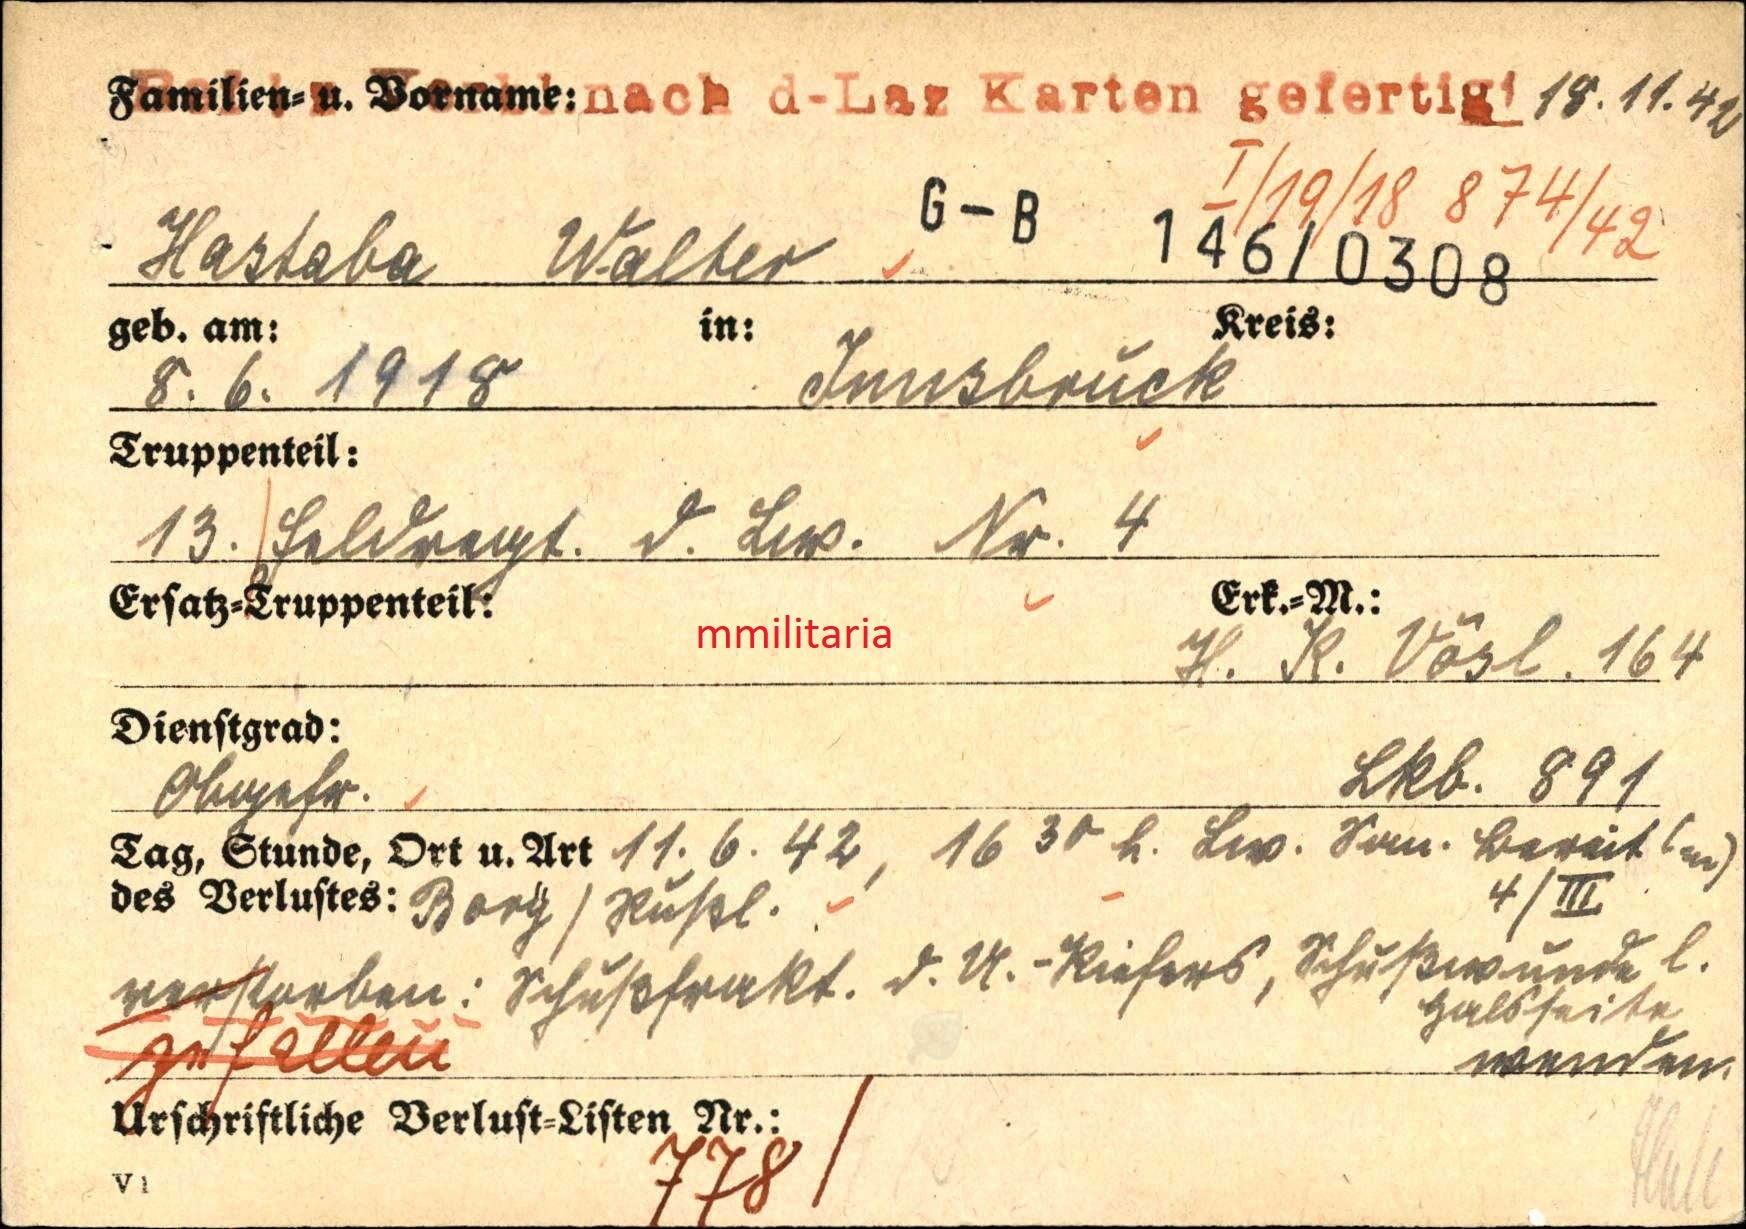 Familien- u. Vorname: nach d-Laz Karten gefertigt 18.11.42
I/19/18 874/42
Hastaba Walter G-B 146/0308
geb. am: in: Kreis:
8. 6. 1918 Innsbruck
Truppenteil:
13. Feldregt. d. Lw. Nr. 4
Ersatz-Truppenteil: Erk.-M.:
mmilitaria
H. K. Vösl. 164
Dienstgrad:
Obgefr. Lkb. 891
Tag, Stunde, Ort u. Art 11. 6. 42, 16 30 h. Lw. San. Bereit (m)
des Verlustes: Borg / Rußl. 4/III
verstorben: Schußfrakt. d. U.-Kiefers, Schußwunde l.
Halsseite
gefallen wenden.
Urschriftliche Verlust-Listen Nr.:
778/
V 1